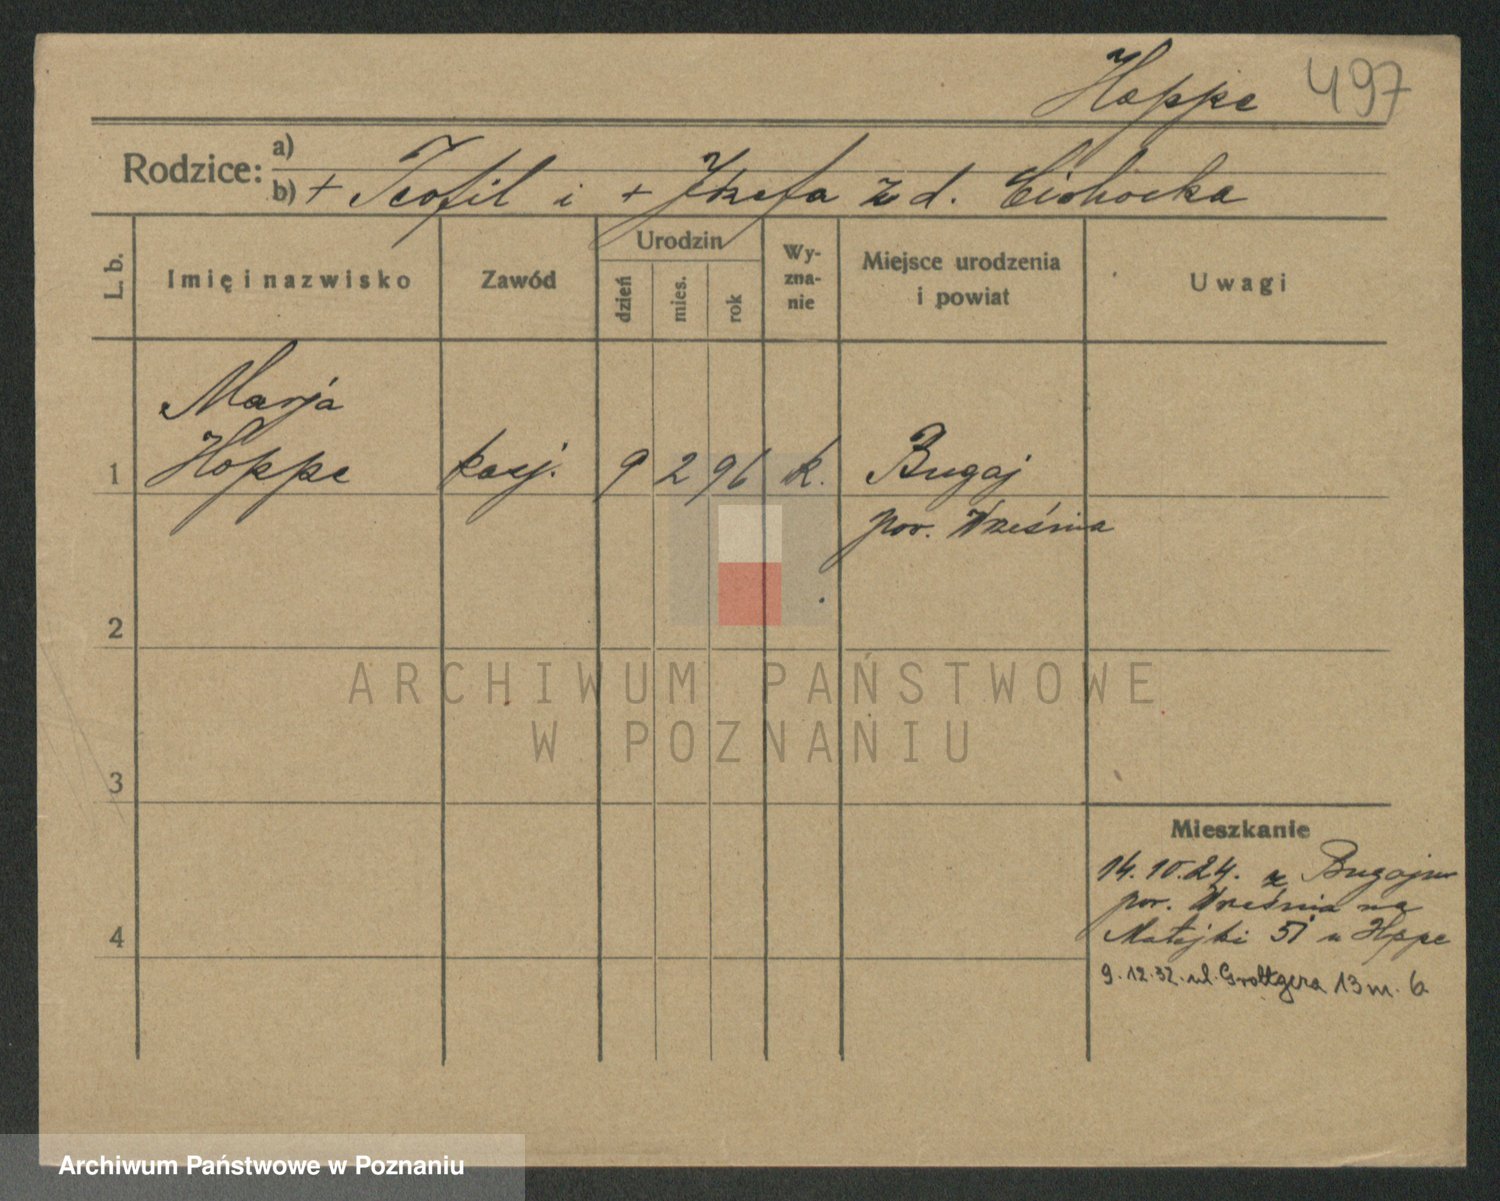 Hoppe 497
Rodzice: a)
b) + Teofil i + Józefa z d. Cichocka
L. b.
Imię i nazwisko
Zawód
Urodzin
dzień
mies.
rok
Wy-
zna-
nie
Miejsce urodzenia
i powiat
Uwagi
Marja
1 Hoppe kasj. 9 2 96 k. Bugaj
pow. Września
2
3
4
Mieszkanie
14.10.24. z Bugaju
pow. Września na
Matejki 51 u Hoppe
9.12.32. ul. Grottgera 13 m. 6
ARCHIWUM PAŃSTWOWE
W POZNANIU
Archiwum Państwowe w Poznaniu